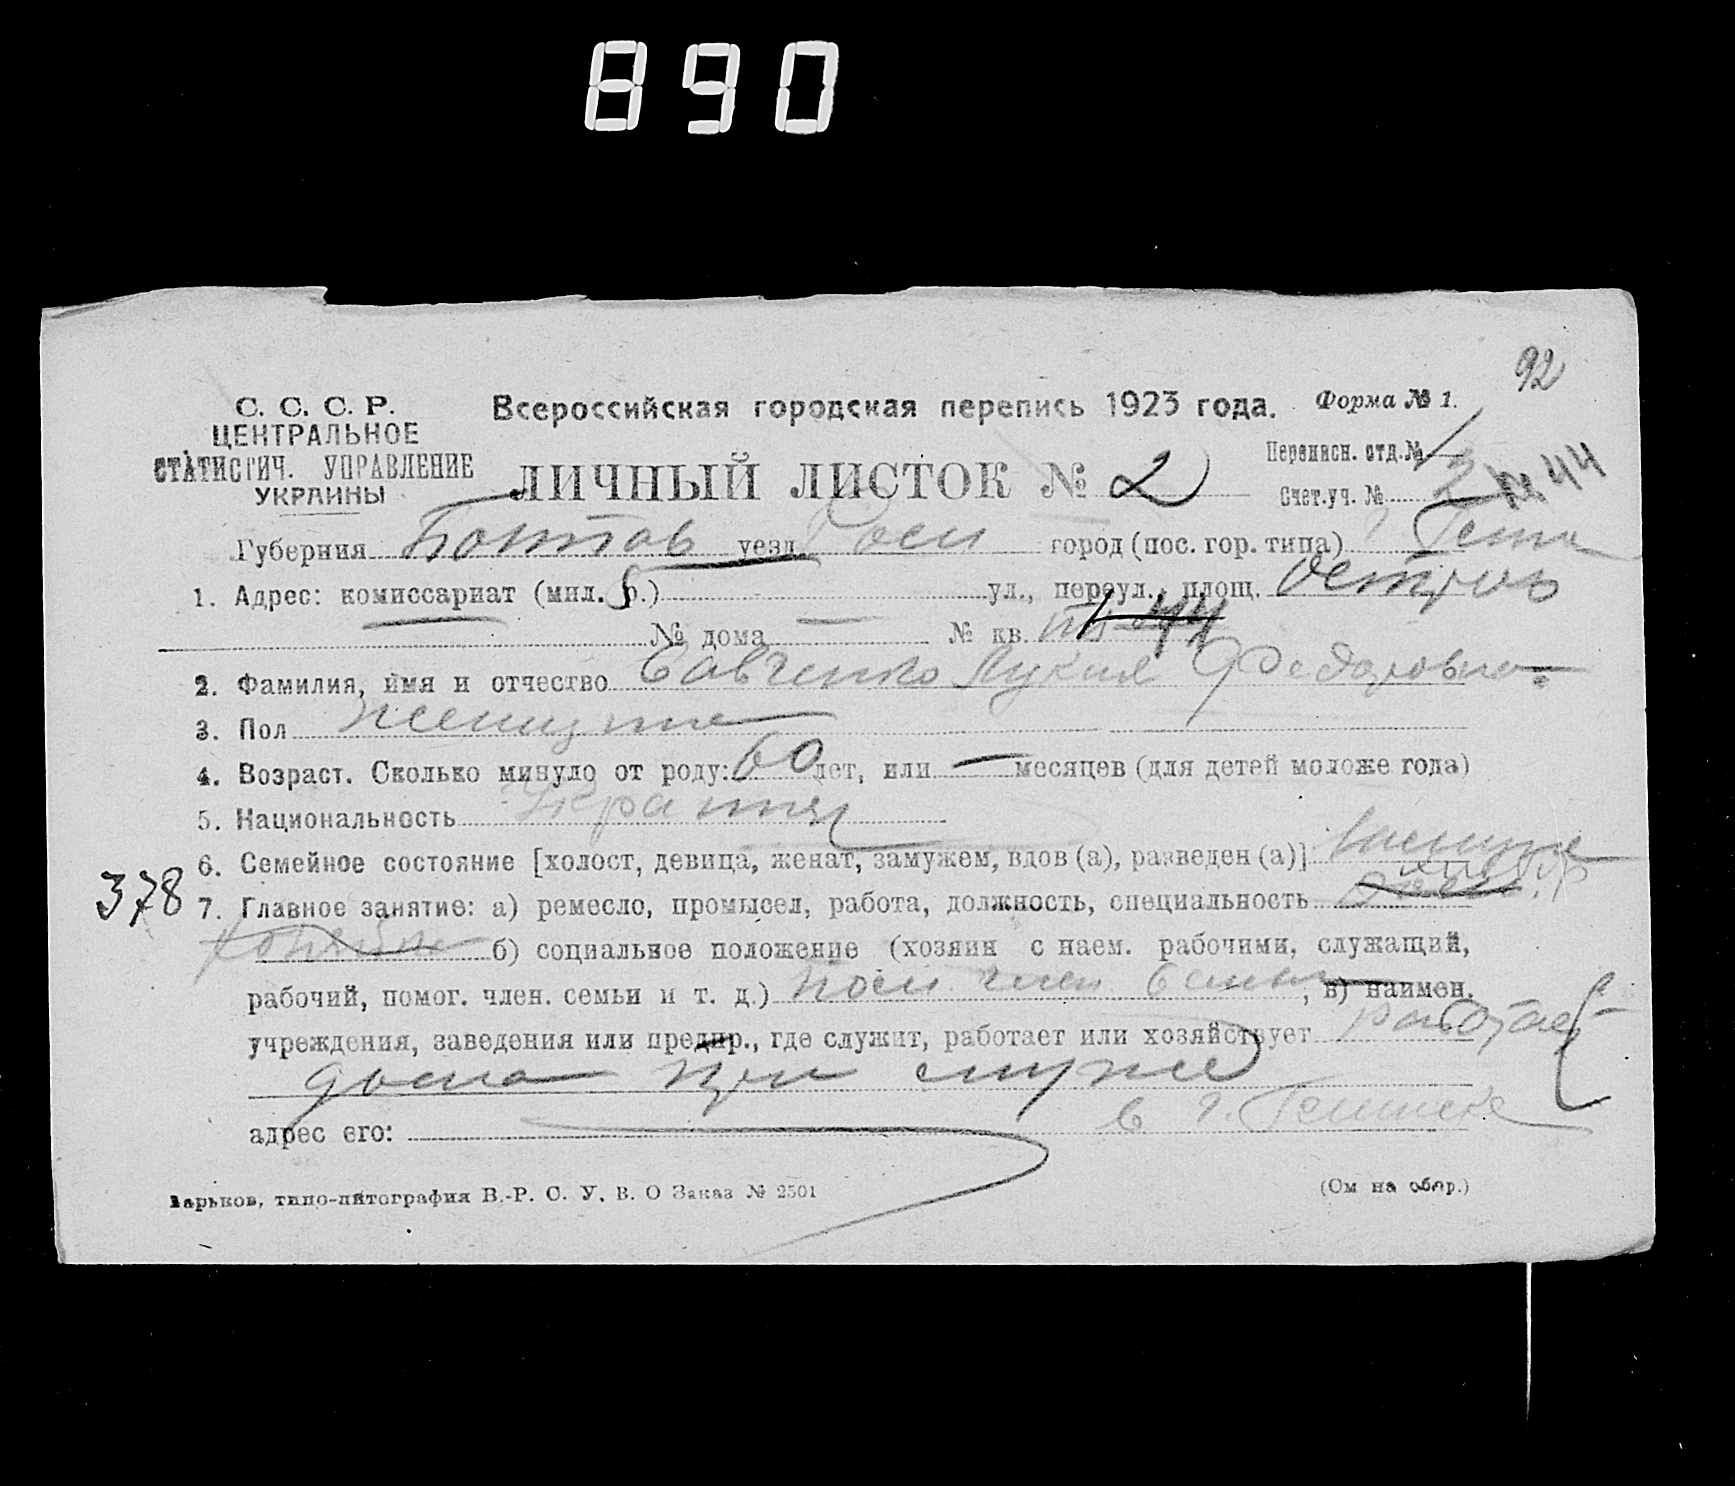 890
92
С. С. С. Р.
ЦЕНТРАЛЬНОЕ
СТАТИСТИЧ. УПРАВЛЕНИЕ
УКРАИНЫ
Всероссийская городская перепись 1923 года. Форма № 1.
ЛИЧНЫЙ ЛИСТОК № 2
Переписн. отд. № 1
Счет.уч. № 2 № 44
Губерния уезд город (пос. гор. типа)
1. Адрес: комиссариат (мил. р.) ул., переул., площ. Остров
№ дома — № кв. 44
2. Фамилия, имя и отчество Савченко Лукия Федоровна
3. Пол женщина
4. Возраст. Сколько минуло от роду: 60 лет, или — месяцев (для детей моложе года)
5. Национальность
6. Семейное состояние [холост, девица, женат, замужем, вдов (а), разведен (а)]
378
7. Главное занятие: а) ремесло, промысел, работа, должность, специальность
б) социальное положение (хозяин с наем. рабочими, служащий,
рабочий, помог. член. семьи и т. д.) член семьи, в) наимен.
учреждения, заведения или предпр., где служит, работает или хозяйствует работает
дома при муже
адрес его: в г.
Харьков, типо-литография В.-Р. С. У. В. О Заказ № 2501
(Ом на обор.)